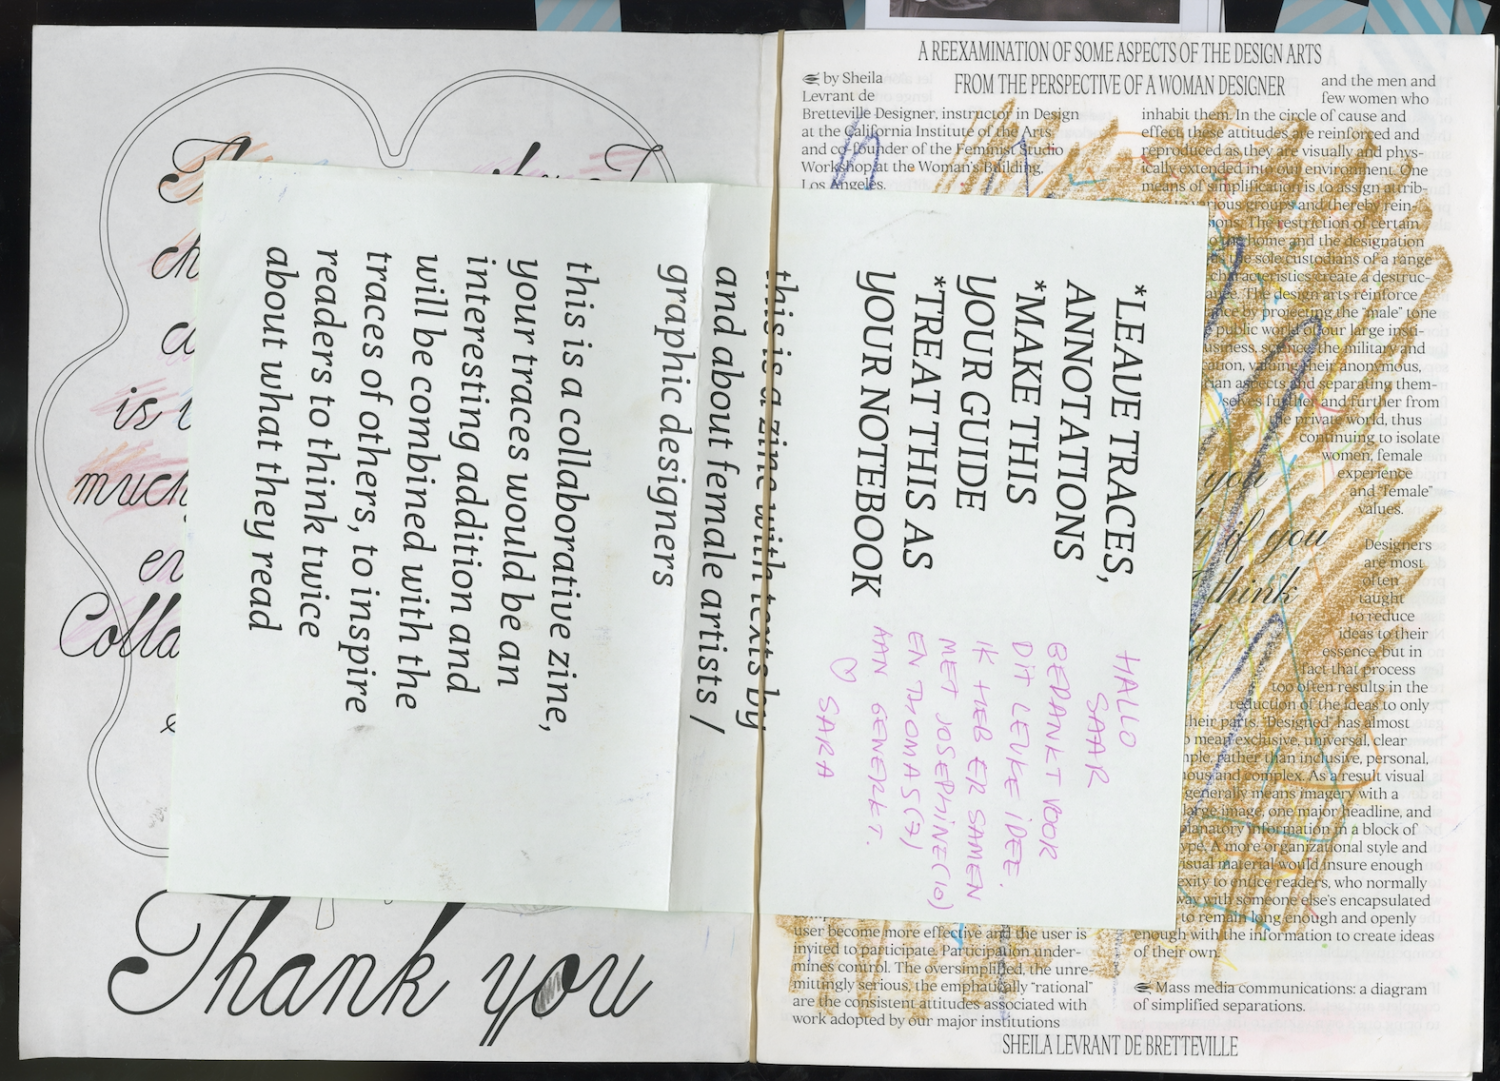 is
much
Colla
Thank you
this is a zine with texts by
and about female artists /
graphic designers
this is a collaborative zine,
your traces would be an
interesting addition and
will be combined with the
traces of others, to inspire
readers to think twice
about what they read
*LEAVE TRACES,
ANNOTATIONS
*MAKE THIS
YOUR GUIDE
*TREAT THIS AS
YOUR NOTEBOOK
HALLO
SAAR
BEDANKT VOOR
DIT LEUKE IDEE.
IK HEB ER SAMEN
MET JOSEPHINE(10)
EN THOMAS(7)
AAN GEWERKT.
♡ SARA
A REEXAMINATION OF SOME ASPECTS OF THE DESIGN ARTS
FROM THE PERSPECTIVE OF A WOMAN DESIGNER
by Sheila
Levrant de
Bretteville Designer, instructor in Design
at the California Institute of the Arts,
and co-founder of the Feminist Studio
Workshop at the Woman's Building,
Los Angeles.
user become more effective and the user is
invited to participate. Participation under-
mines control. The oversimplified, the unre-
mittingly serious, the emphatically "rational"
are the consistent attitudes associated with
work adopted by our major institutions
and the men and
few women who
inhabit them. In the circle of cause and
effect these attitudes are reinforced and
reproduced as they are visually and phys-
ically extended into our environment. One
means of simplification is to assign attrib-
rious groups and thereby rein-
ions. The restriction of certain
the home and the designation
the sole custodians of a range
characteristics create a destruc-
The design arts reinforce
by projecting the "male" tone
public world of our large insti-
business, science, the military and
ation, valuing their anonymous,
rian aspects and separating them-
selves further and further from
the private world, thus
continuing to isolate
women, female
experience
and "female"
values.
you
if you
think
Designers
are most
often
taught
to reduce
ideas to their
essence, but in
fact that process
too often results in the
reduction of the ideas to only
their parts. "Designed" has almost
mean exclusive, universal, clear
rather than inclusive, personal,
and complex. As a result visual
generally means imagery with a
large image, one major headline, and
planatory information in a block of
type. A more organizational style and
visual material would insure enough
exity to entice readers, who normally
way with someone else's encapsulated
to remain long enough and openly
enough with the information to create ideas
of their own.
Mass media communications: a diagram
of simplified separations.
SHEILA LEVRANT DE BRETTEVILLE